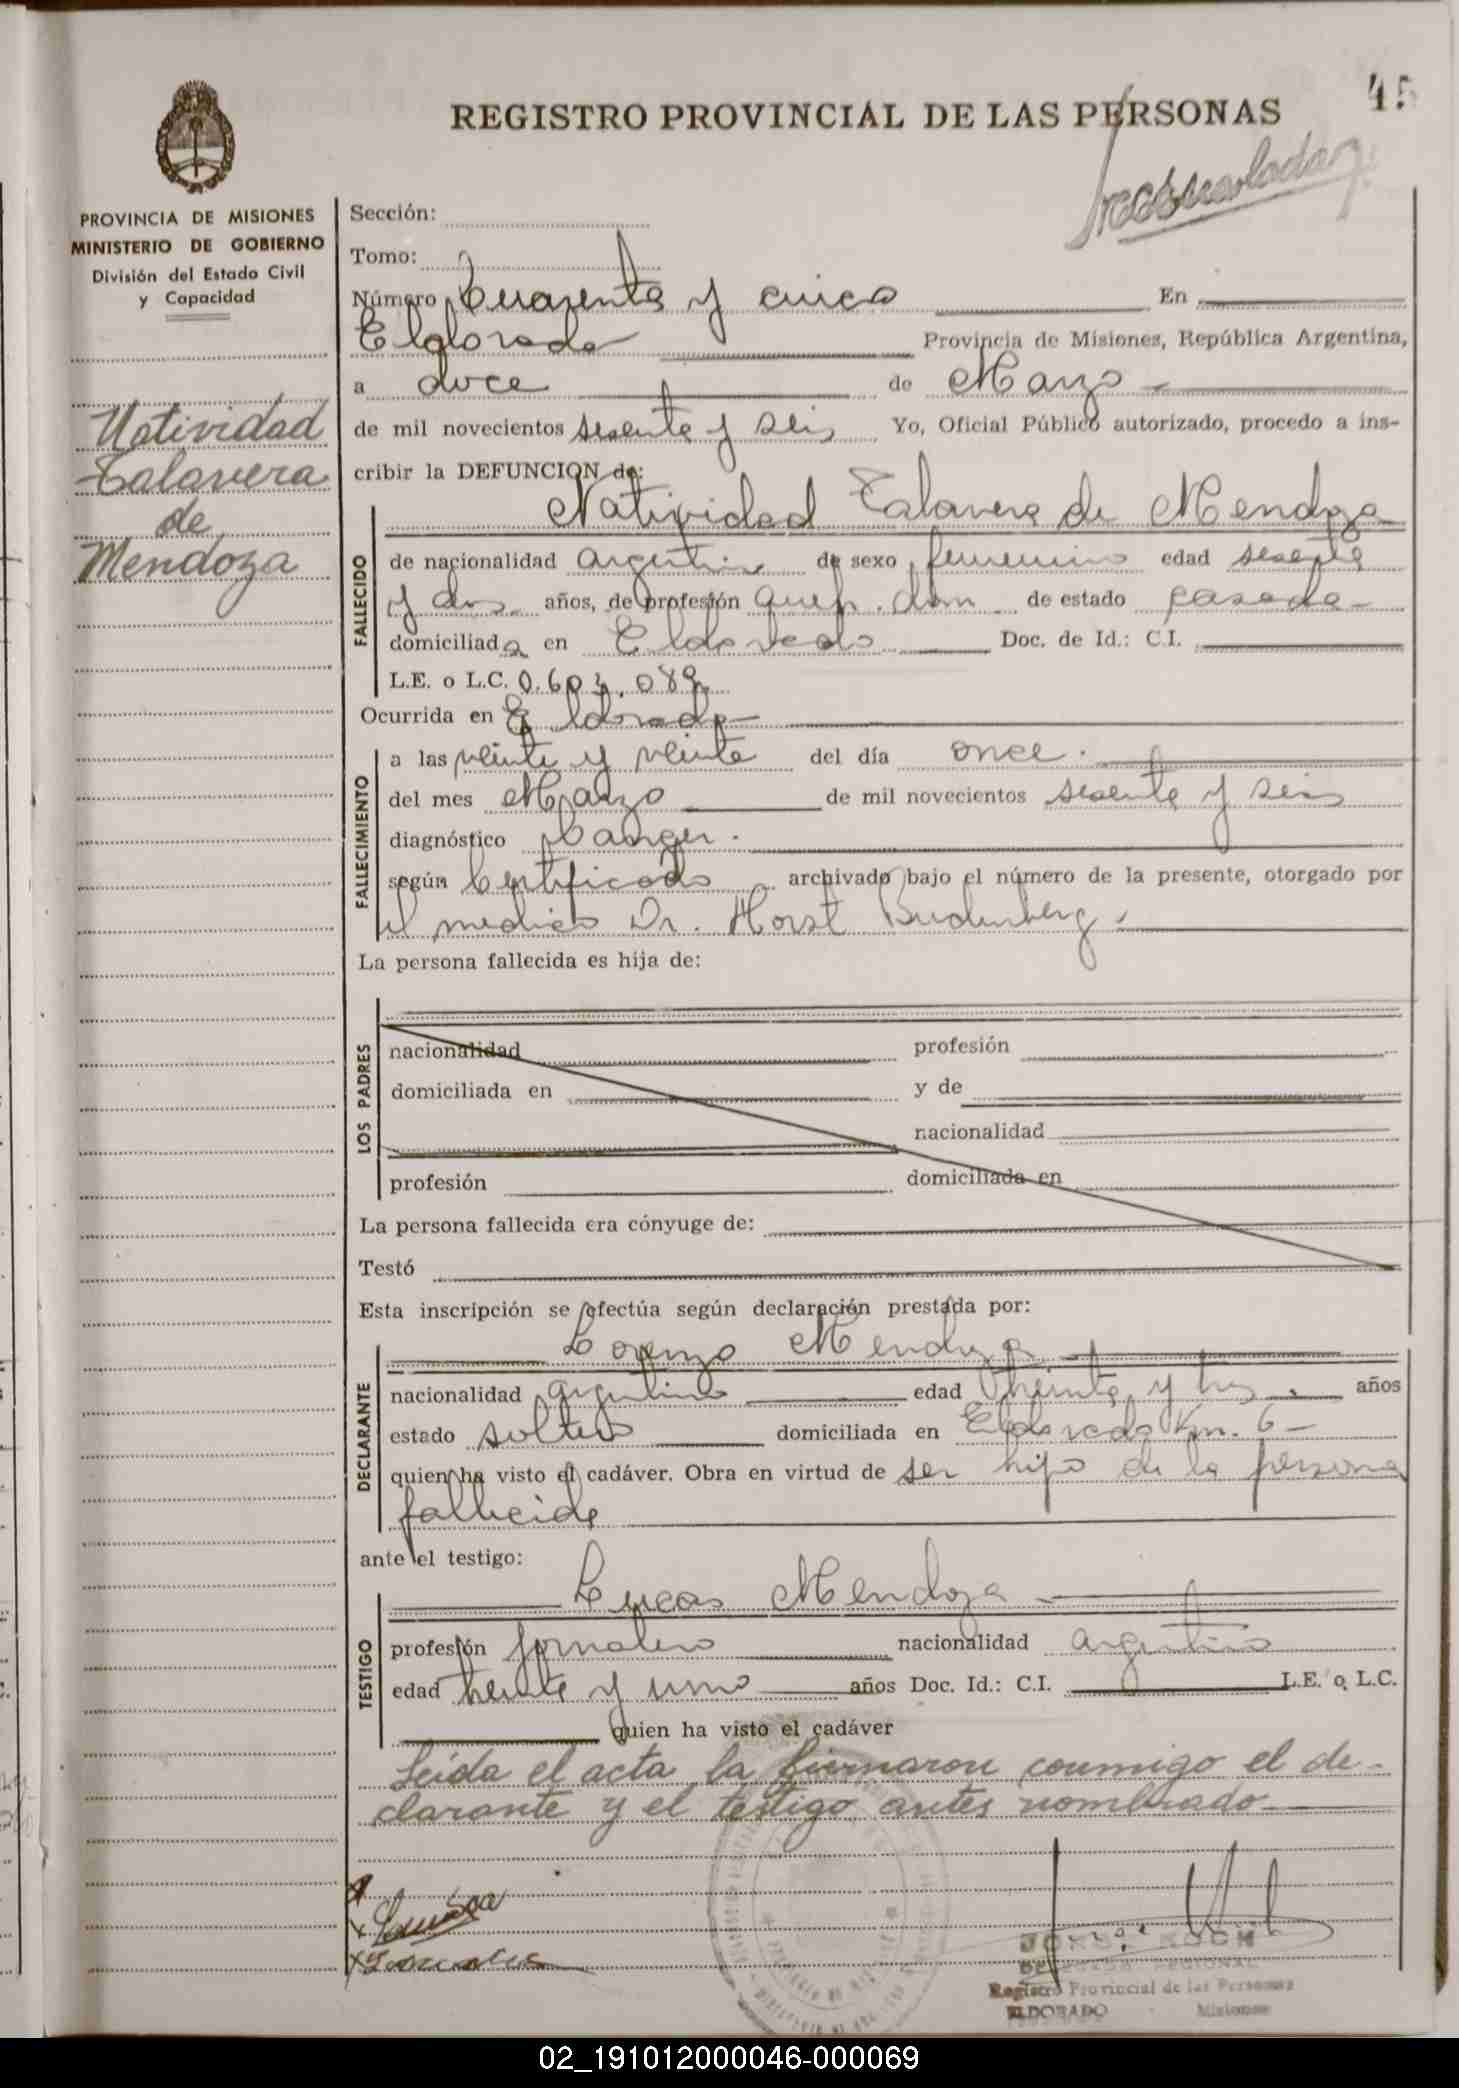 45
REGISTRO PROVINCIAL DE LAS PERSONAS
PROVINCIA DE MISIONES
MINISTERIO DE GOBIERNO
División del Estado Civil
y Capacidad
Natividad
Talavera
de
Mendoza
Sección:
Tomo:
Número Cuarenta y cinco En
Eldorado Provincia de Misiones, República Argentina,
a doce de Marzo
de mil novecientos sesenta y seis Yo, Oficial Público autorizado, procedo a ins-
cribir la DEFUNCION de:
Natividad Talavera de Mendoza
FALLECIDO
de nacionalidad argentina de sexo femenino edad sesenta
y dos años, de profesión queh. dom. de estado casada
domiciliada en Eldorado Doc. de Id.: C.I.
L.E. o L.C. 0.603.089
Ocurrida en Eldorado
FALLECIMIENTO
a las veinte y veinte del día once.
del mes Marzo de mil novecientos sesenta y seis
diagnóstico Canger.
según Certificado archivado bajo el número de la presente, otorgado por
el medico Dr. Horst Budenberg.
La persona fallecida es hija de:
LOS PADRES
nacionalidad profesión
domiciliada en y de
nacionalidad
profesión domiciliada en
La persona fallecida era cónyuge de:
Testó
Esta inscripción se efectúa según declaración prestada por:
DECLARANTE
Lorenzo Mendoza
nacionalidad argentino edad treinta y tres años
estado soltero domiciliada en Eldorado Km. 6
quien ha visto el cadáver. Obra en virtud de ser hijo de la persona
fallecida
ante el testigo:
TESTIGO
Lucas Mendoza
profesión jornalero nacionalidad argentino
edad treinta y uno años Doc. Id.: C.I. L.E. o L.C.
quien ha visto el cadáver
Leída el acta la firmaron conmigo el de-
clarante y el testigo antes nombrado
DELEGADO REGIONAL
Registro Provincial de las Personas
ELDORADO - Misiones
02_191012000046-000069